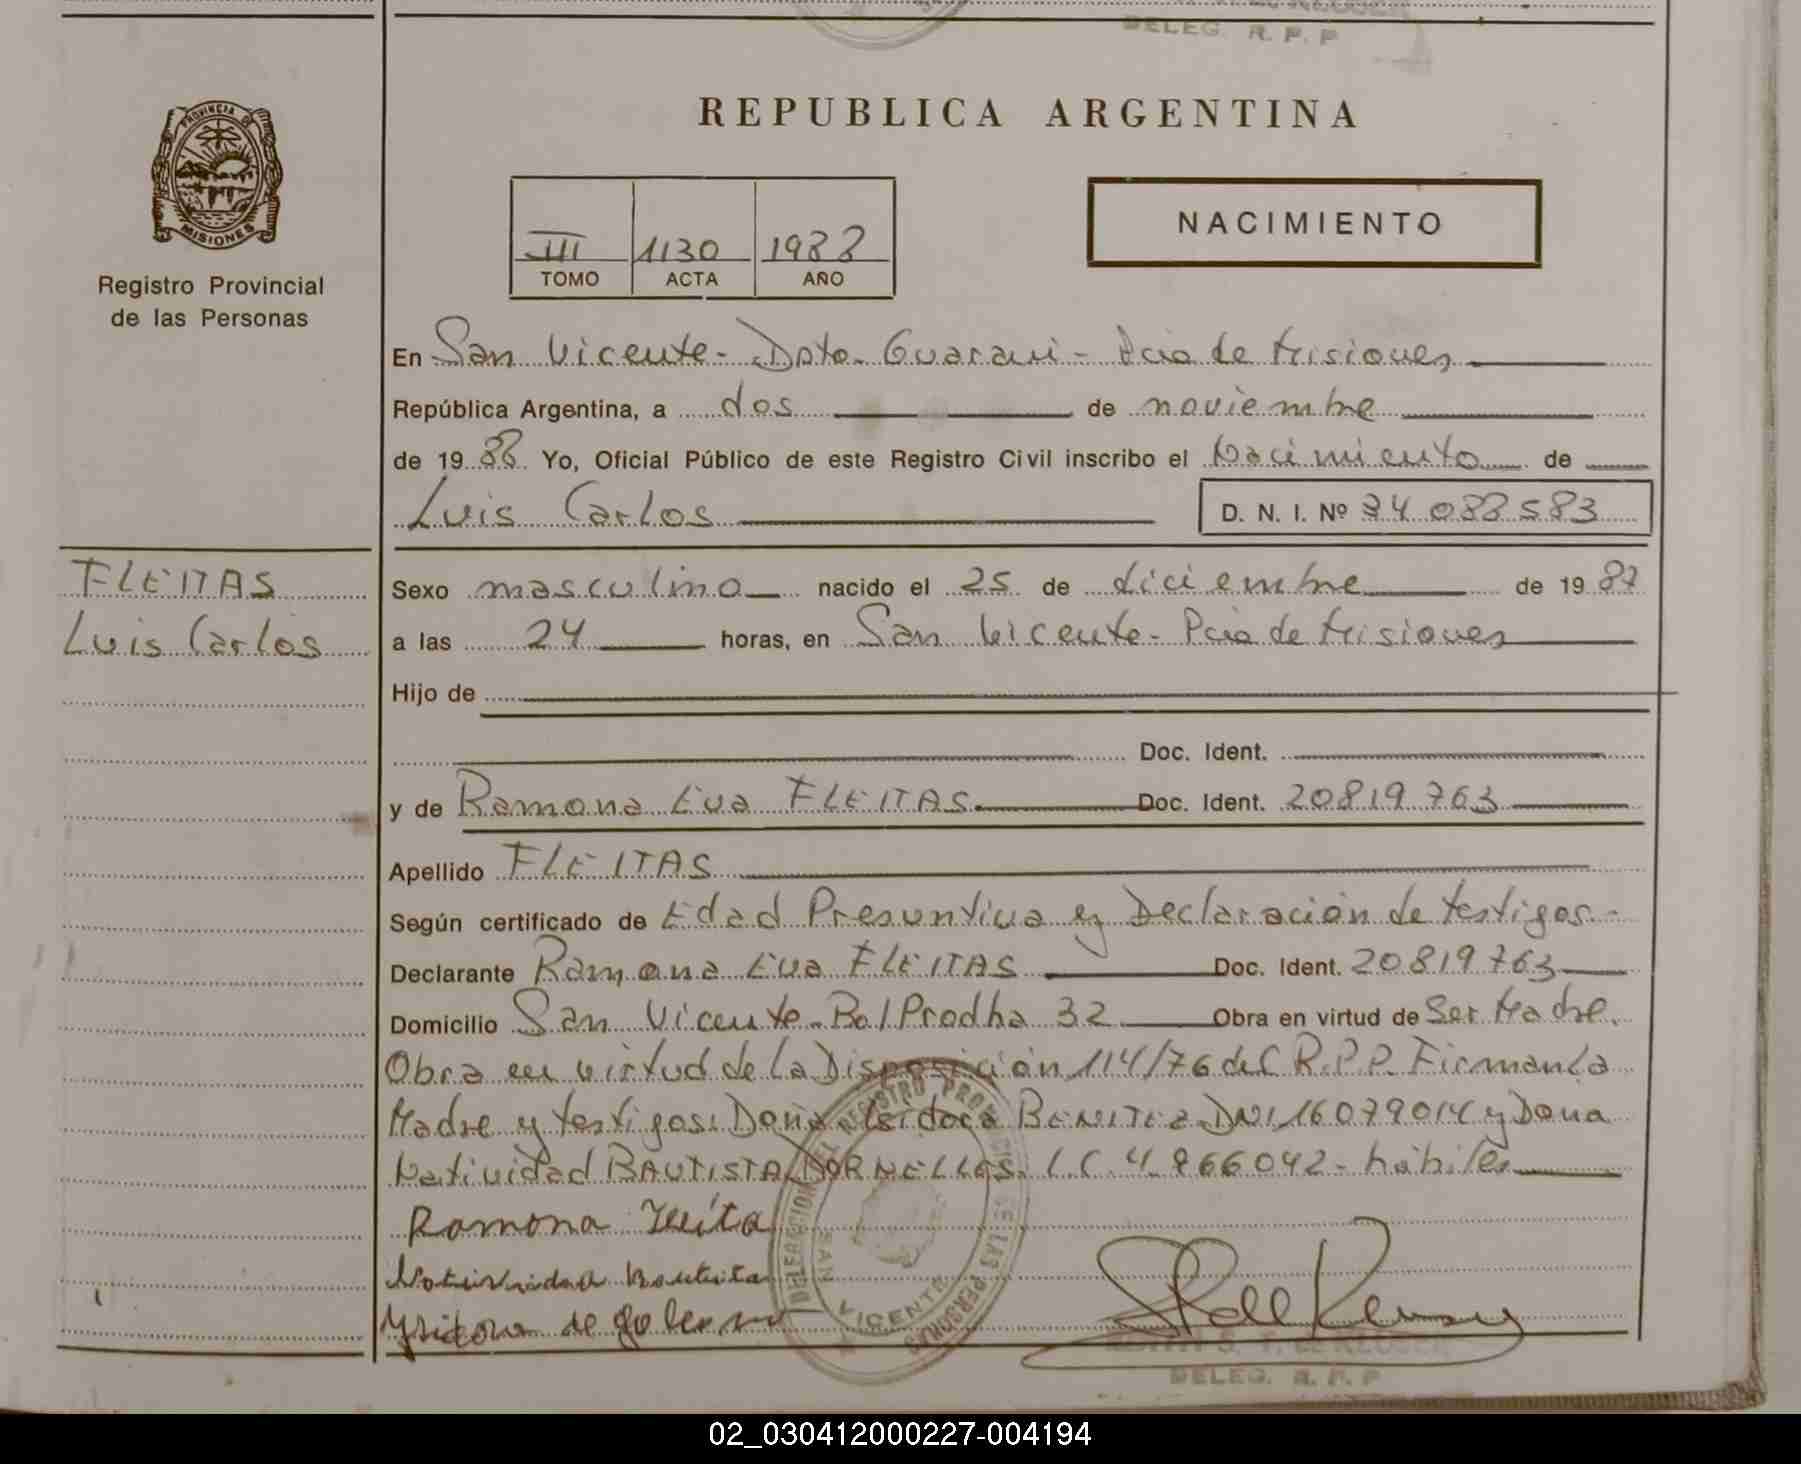 DELEG. R. P. P
REPUBLICA ARGENTINA
PROVINCIA DE
MISIONES
Registro Provincial
de las Personas
III 1130 1988
TOMO ACTA AÑO
NACIMIENTO
En San Vicente - Dpto. Guarani - Pcia de Misiones
República Argentina, a dos de noviembre
de 19 88 Yo, Oficial Público de este Registro Civil inscribo el Nacimiento de
Luis Carlos D. N. I. Nº 34 088 583
FLEITAS
Luis Carlos
Sexo masculino nacido el 25 de diciembre de 19 87
a las 24 horas, en San Vicente - Pcia de Misiones
Hijo de
Doc. Ident.
y de Ramona Eva FLEITAS Doc. Ident. 20819763
Apellido FLEITAS
Según certificado de Edad Presuntiva y Declaración de testigos.-
Declarante Ramona Eva FLEITAS Doc. Ident. 20819763
Domicilio San Vicente - Ba/Pradha 32 Obra en virtud de Ser Madre.
Obra en virtud de la Disposición 114/76 del R.P.P. Firman La
Madre y testigos: Doña Isidora BENITEZ DNI 16079014 y Doña
Natividad BAUTISTA DORNELLES. L.C. 4.866042 - hábiles
Ramona
Natividad Bautista
Ysidora de
DELEGACION DEL REGISTRO PROVINCIAL DE LAS PERSONAS
SAN VICENTE
DELEG. R. P. P
02_030412000227-004194